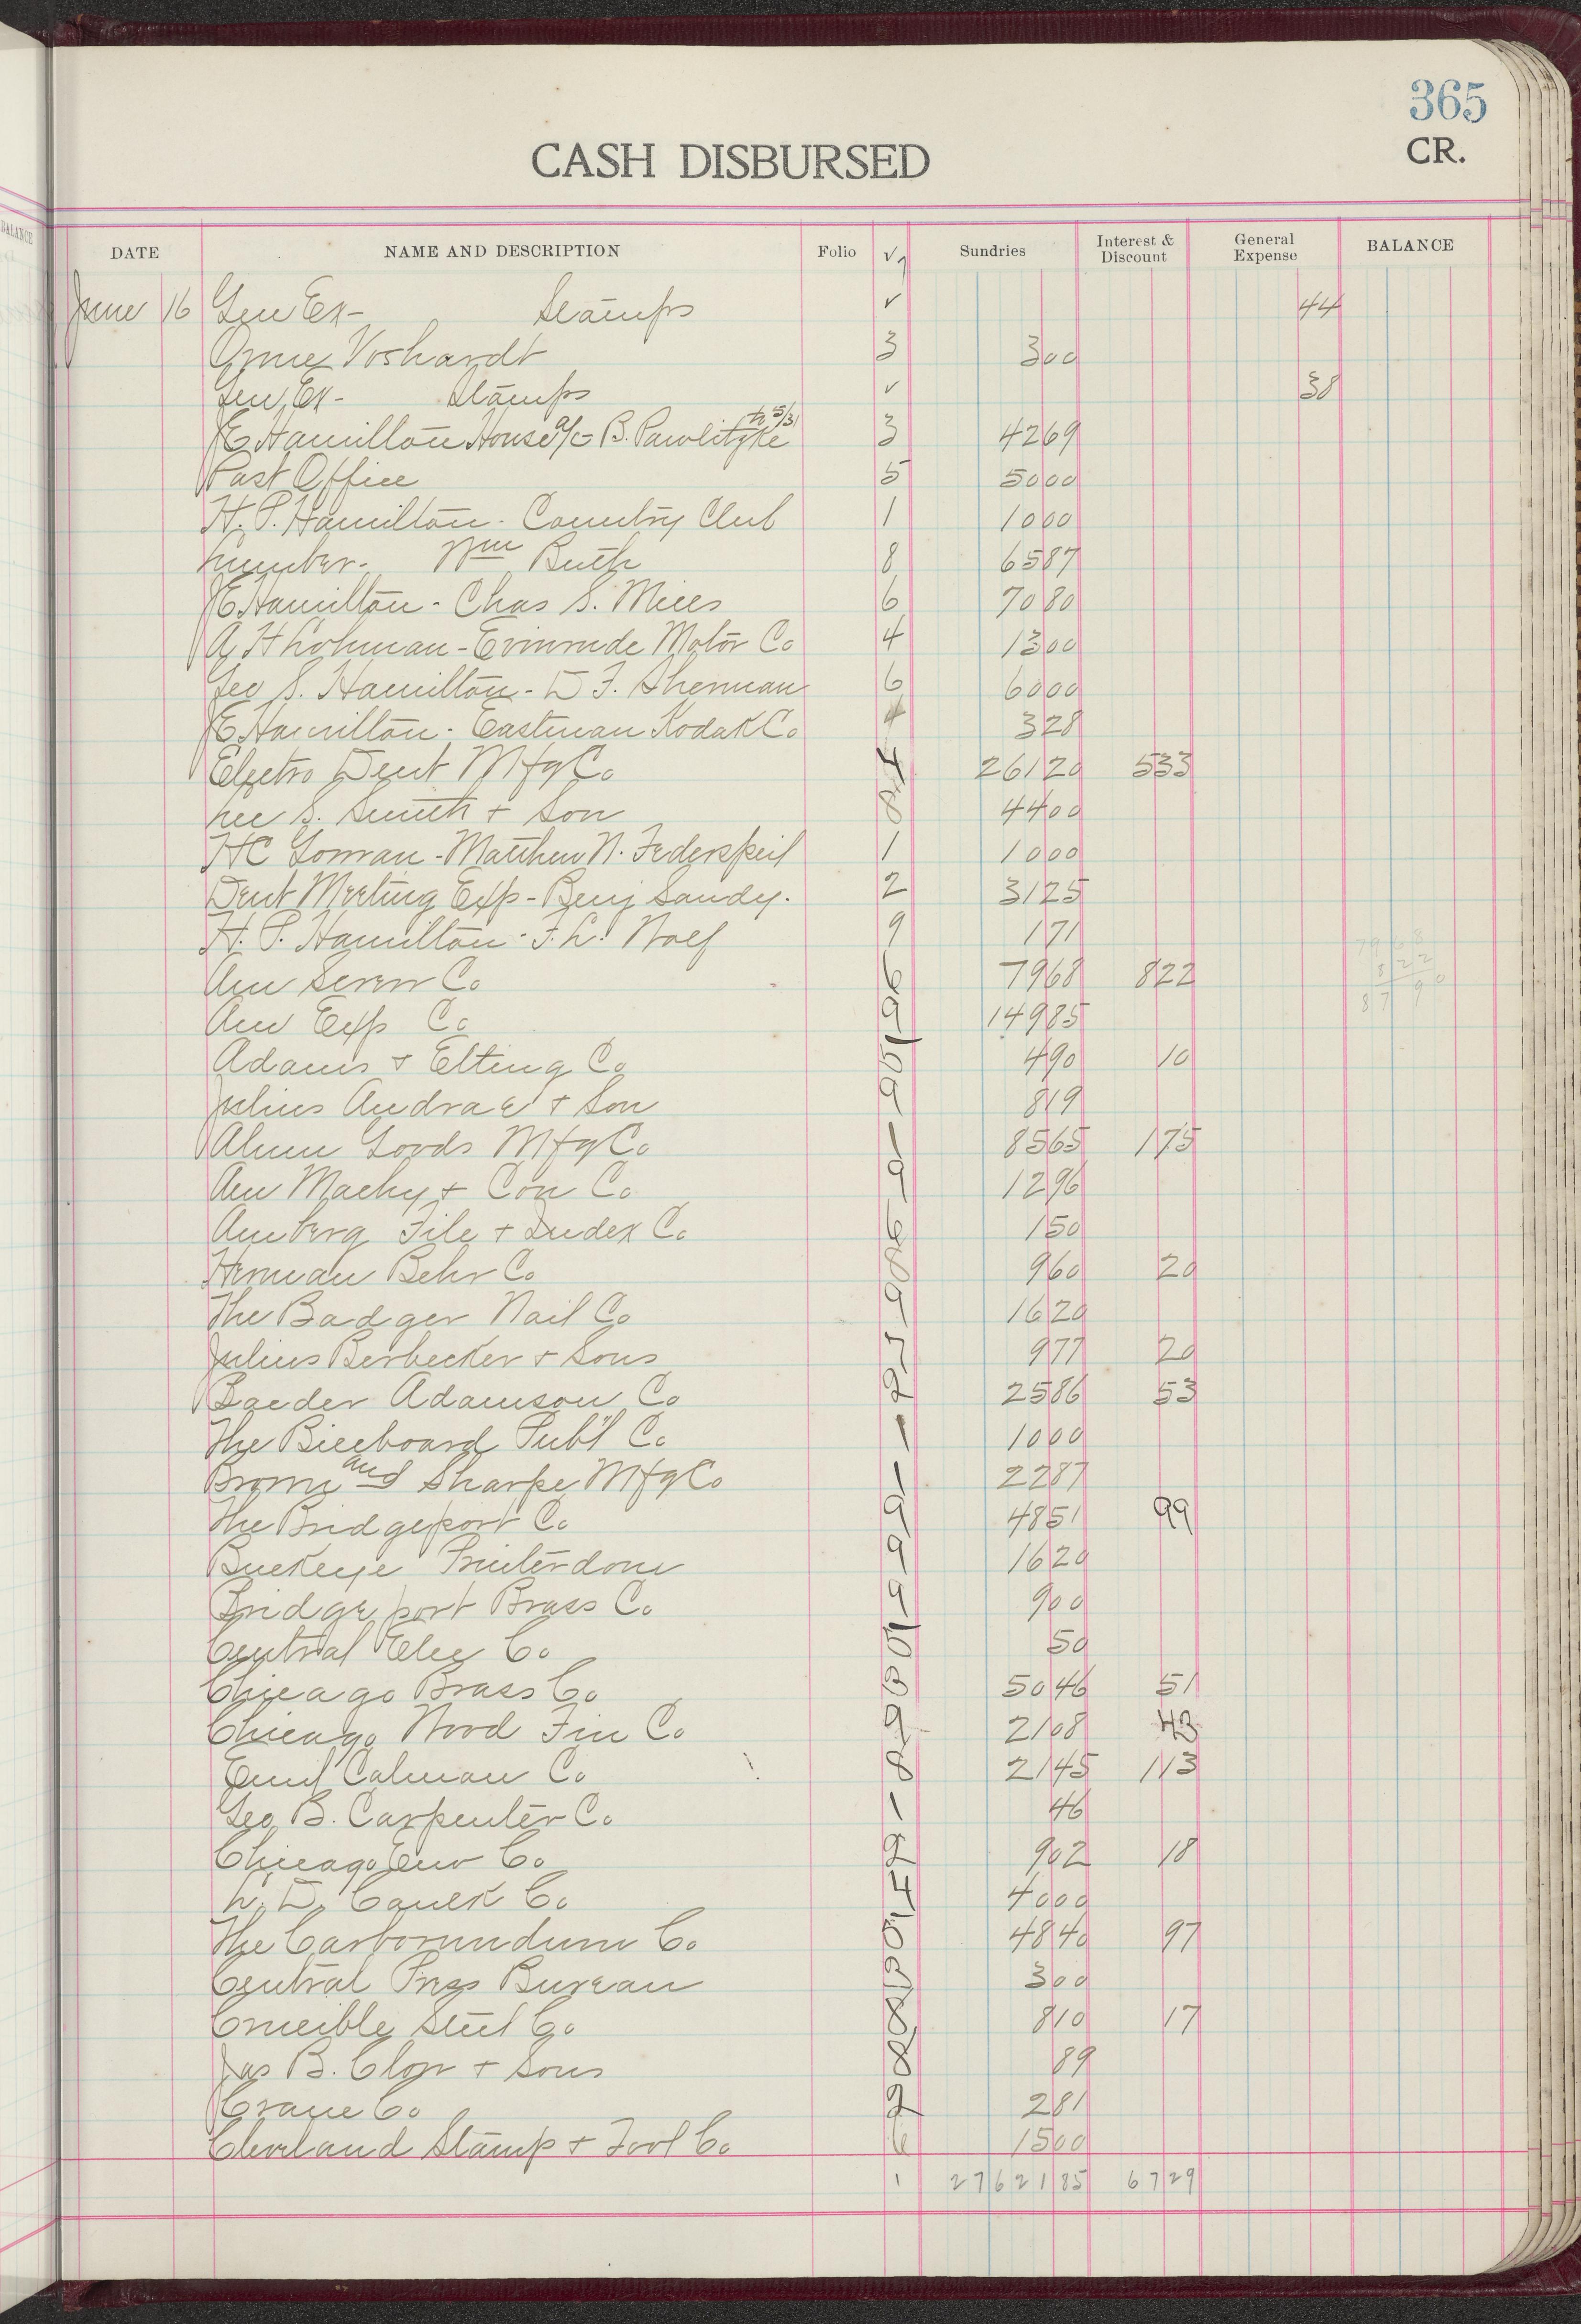 365
CASH DISBURSED CR.
BALANCE
DATE NAME AND DESCRIPTION Folio √ Sundries Interest & Discount General Expense BALANCE
June 16 Gen Ex- Stamps √ 44
Voshardt 3 300
Gen Ex- Stamps √ 38
JE Hamilton House a/c B. Pawlitzke to 5/31 3 4269
Post Office 5 5000
H. P. Hamilton - Country Club 1 1000
Lumber - Wm Buth 8 6587
JE Hamilton - Chas S. Miees 6 7080
A H Lohman - Evinrude Motor Co 4 1300
Geo S. Hamilton - D F. Sherman 6 6000
JE Hamilton - Eastman Kodak Co 4 328
Electro Dent Mfg Co 26120 533
Lee S. Smith + Son 8 4400
HC Gorman - Matthew N. Federspeil 1 1000
Dent Meeting Exp - Benj Bandy. 2 3125
H. P. Hamilton - F. L. Wolf 9 171
Am Screw Co 6 7968 822
7968
822
8790
Am Exp Co 9 14985
Adams + Elting Co 5 490 10
Julius Andrae + Son 9 819
Alum Goods Mfg Co 8565 175
Am Machy + Con Co 9 1296
Amberg File + Index Co 6 150
Herman Behr Co 8 960 20
The Badger Nail Co 9 1620
Julius Berbecker + Sons 977 20
Baeder Adamson Co 2 2586 53
The Billboard Publ Co 1 1000
Brown and Sharpe Mfg Co 1 2287
The Bridgeport Co 9 4851 99
Buckeye Printerdom 9 1620
Bridgeport Brass Co 9 900
Central Elec Co 50
Chicago Brass Co 3 5046 51
Chicago Wood Fin Co 9 2108 43
Emil Calman Co 8 2145 113
Geo B. Carpenter Co 1 46
Chicago Env Co 2 902 18
L. D. Caulk Co 4 4000
The Carborundum Co 4840 97
Central Press Bureau 300
Crucible Steel Co 8 810 17
Jas B. Clow + Sons 8 89
Crane Co 2 281
Cleveland Stamp + Tool Co 6 1500
1 2762185 6729